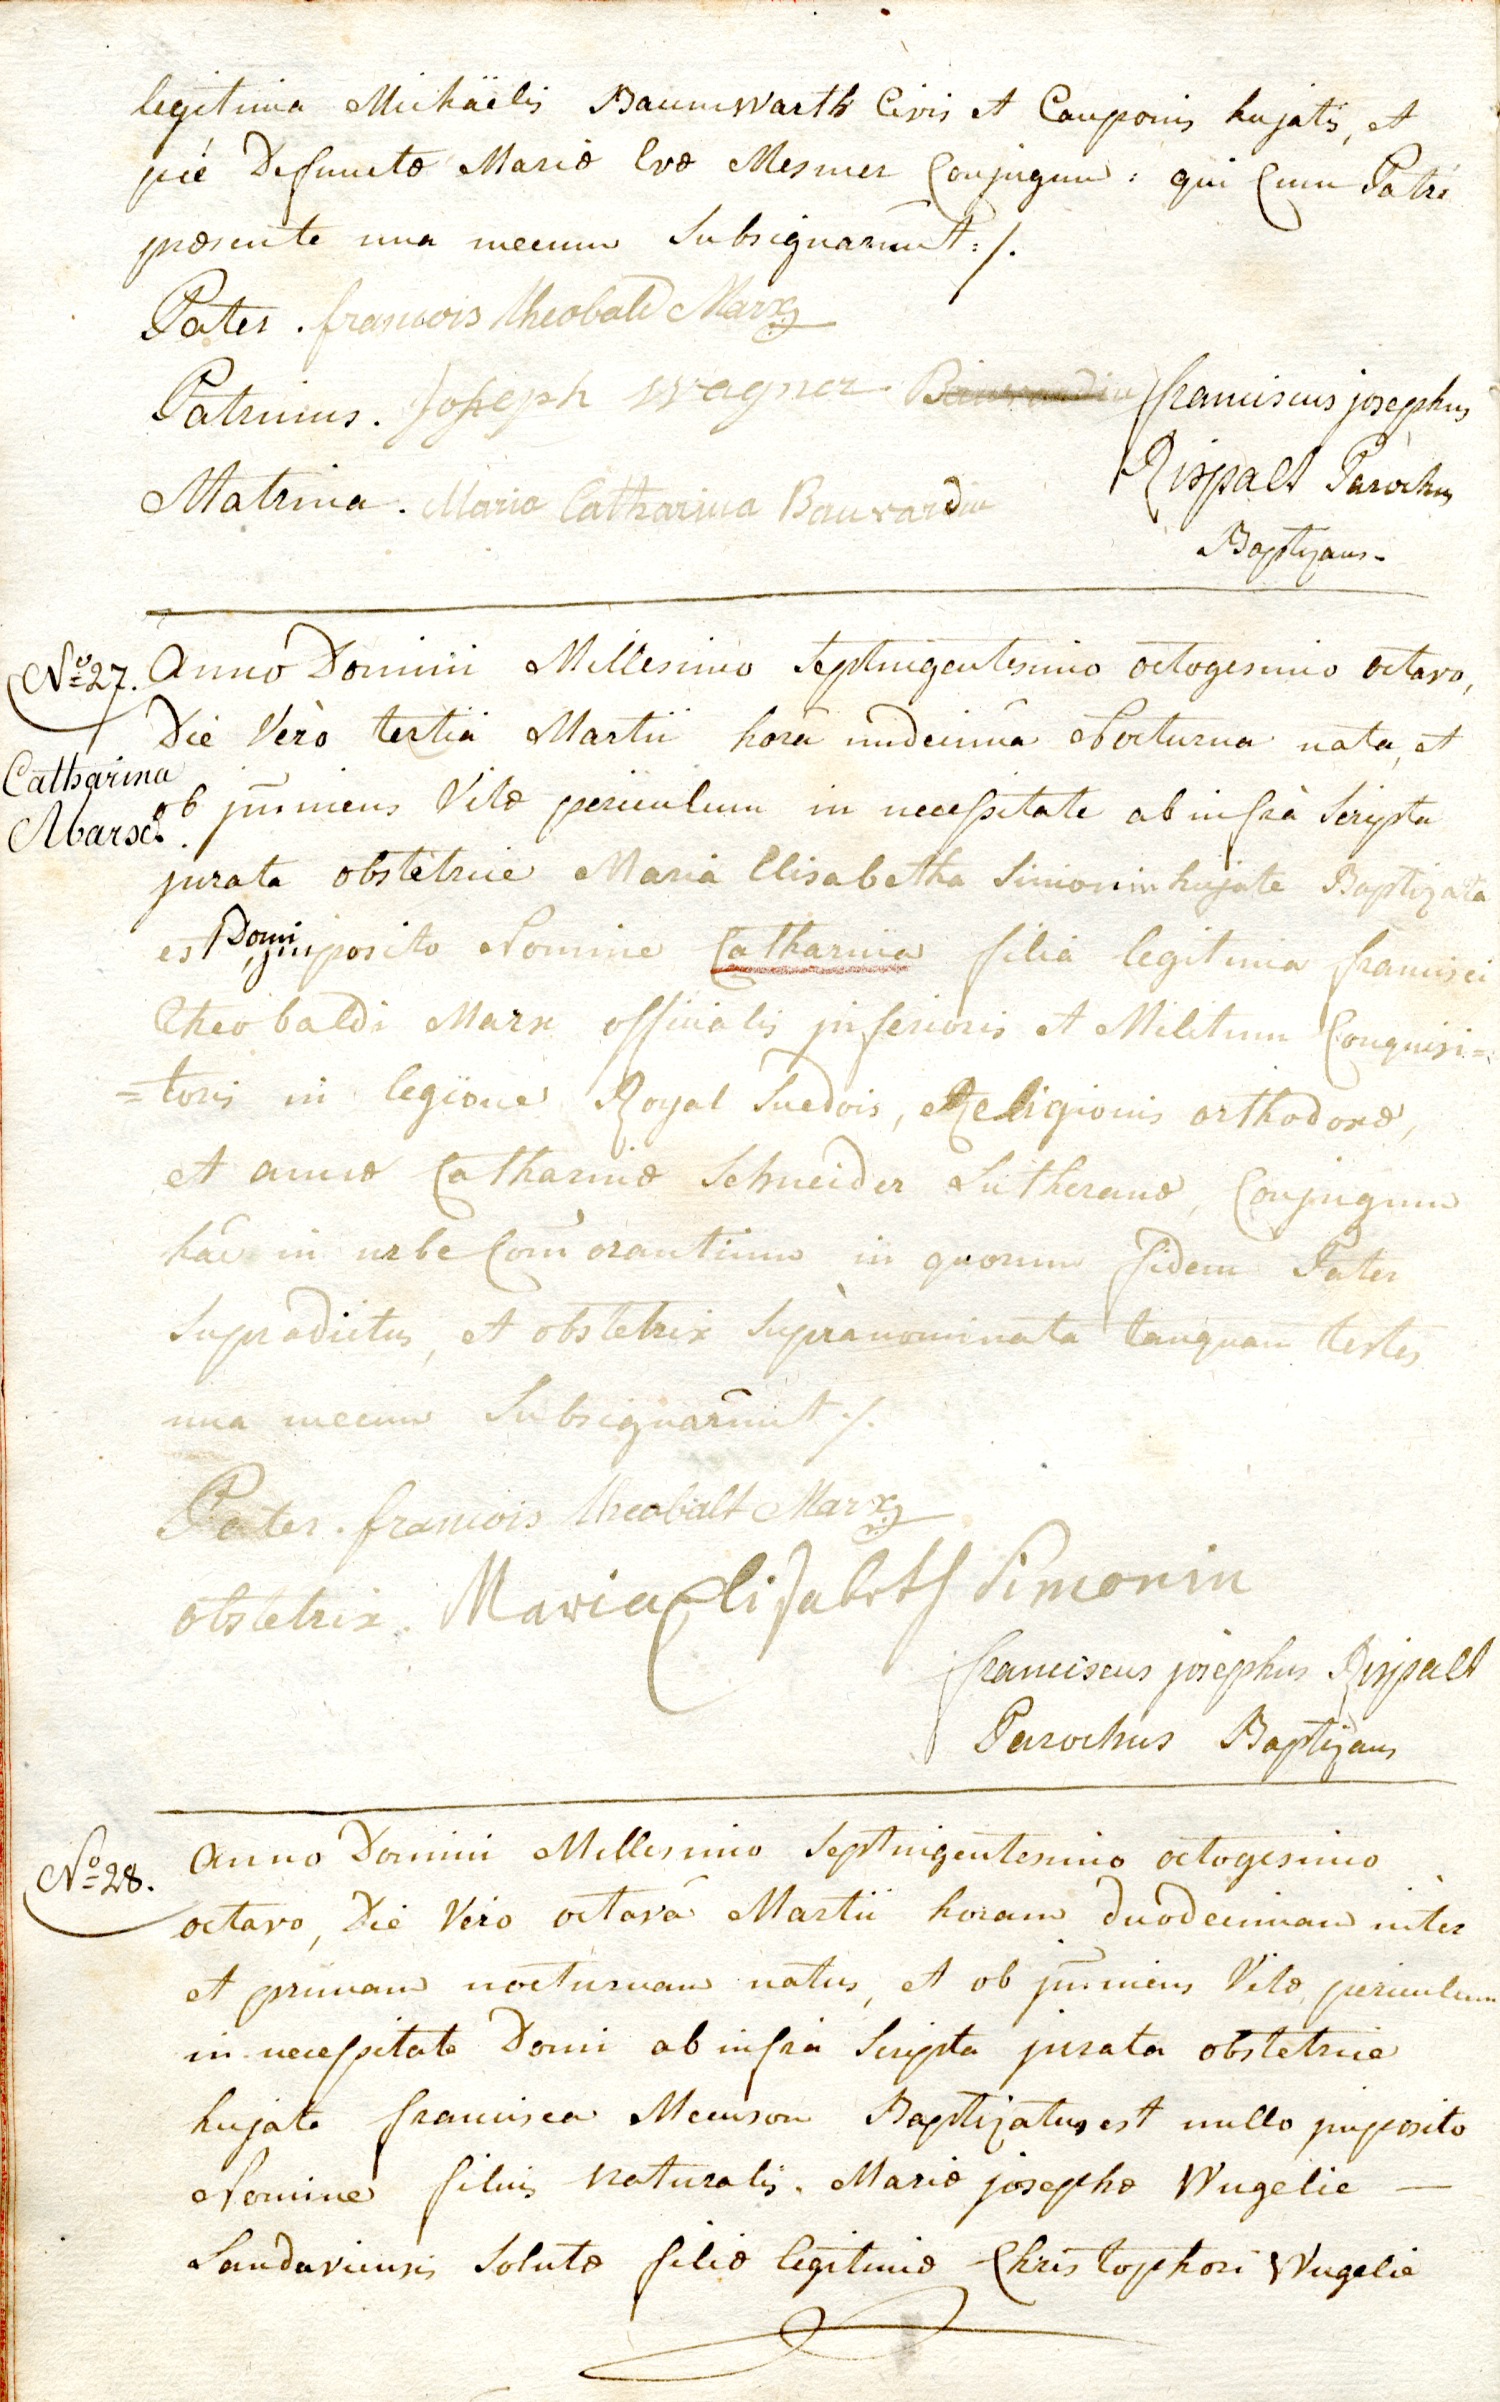 legitima Michaëlis Baumwarth Civis et Cauponis hujatis, et
pié Defunctæ Mariæ Evæ Mesmer Conjugum: qui Cum Patre
præsente una mecum Subsignarunt:/.
Pater. francois theobald Marx
Patrinus. Joseph Wagner
franciscus josephus
Rispalt Parochus
Matrina. Maria Catharina Bauvardin
Baptizans.
N.º 27. Anno Domini Millesimo Septingentesimo octogesimo octavo,
Die Vero tertia Martii hora undecima Nocturna nata, et
Catharina
Marx.
ob jm̄inens Vitæ periculum in necessitate ab infrà Scripta
jurata obstetrice Maria Elisabetha Simonin hujate Baptizata
est Domi, jmposito Nomine Catharina filia legitima francisci
Theobaldi Marx officialis jnferioris et Militum Conquisi=
=toris in legione Royal Suedois, Religionis orthodoxæ,
et annæ Catharinæ Schneider Lutheranæ, Conjugum
hâc in urbe Com̄orantium in quorum fidem Pater
Supradictus, et obstetrix Supranominata tanquam testes
una mecum Subsignarunt ./.
Pater. francois theobalt Marx
obstetrix. Maria Elisabeth Simonin
franciscus josephus Rispalt
Parochus Baptizans
N.º 28. Anno Domini Millesimo Septingentesimo octogesimo
octavo, Die Vero octava Martii horam duodecimam inter
et primam nocturnam natus, et ob jm̄inens Vitæ periculum
in necessitate Domi ab infrà Scripta jurata obstetrice
hujate francisca Meunson Baptizatus est nullo jmposito
Nomine filius naturalis. Mariæ josephæ Wugelie —
Landaviensis Solutæ filiæ legitimæ Christophori Wugelie